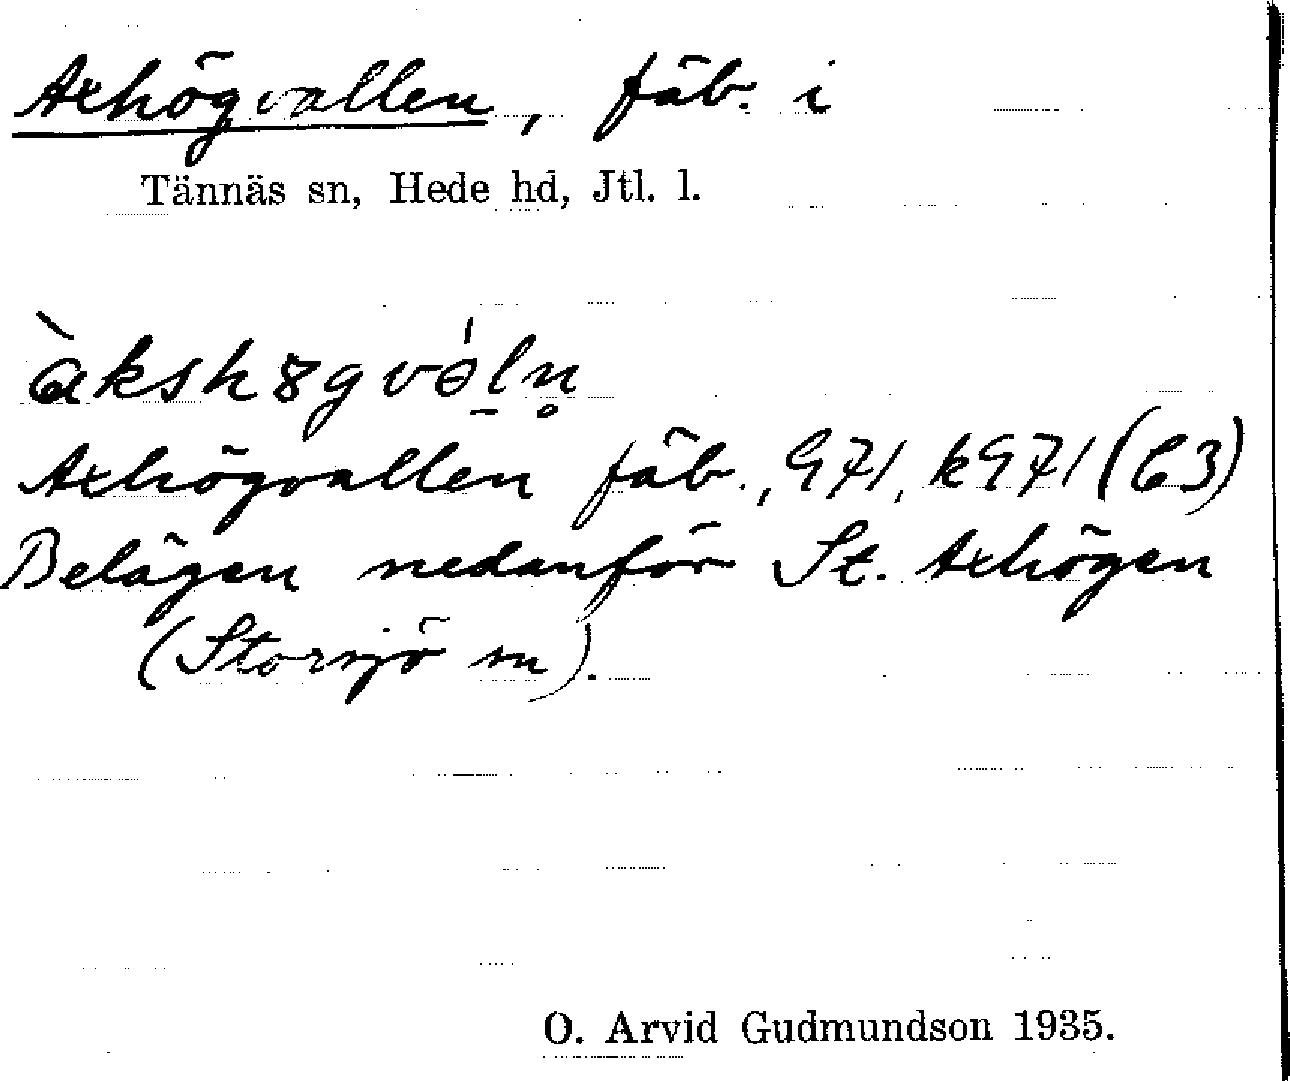 Axhögvallen, fäb. i
Tännäs sn, Hede hd, Jtl. l.
àkshȣgvɵ́l̠n̥
Axhögvallen fäb., G71, k971 (C3)
Belägen nedanför St. Axhögen
(Storsjö sn).
O. Arvid Gudmundson 1935.